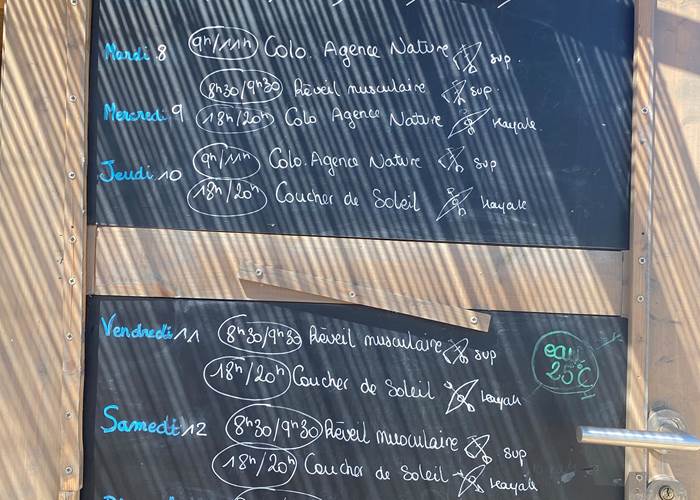 Mardi 8 9h/11h Colo. Agence Nature sup.
8h30/9h30 Réveil musculaire sup.
Mercredi 9 18h/20h Colo Agence Nature Kayak.
9h/11h Colo. Agence Nature sup
Jeudi 10 18h/20h Coucher de Soleil Kayak
Vendredi 11 8h30/9h30 Réveil musculaire sup
eau 25°C
18h/20h Coucher de Soleil Kayak
Samedi 12 8h30/9h30 Réveil musculaire sup
18h/20h Coucher de Soleil Kayak